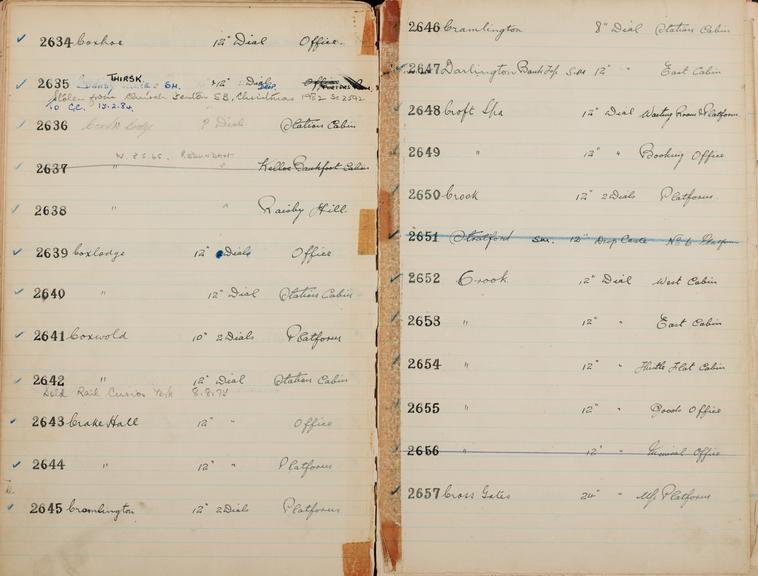 2634 Coxhoe 12" Dial Office.
THIRSK
2635 S.M. 12" Dials
Stolen from Church Fenton S.B. Christmas 1982
TO C.C. 13.2.84.
2636 Coxhoe Bridge Dial Station Cabin
W. REDUNDANT
2637 " " Kelloe Bankfoot Cabin
2638 " " Raisby Hill
2639 Coxlodge 12" Dials Office
2640 " 12" Dial Station Cabin
2641 Coxwold 10" 2 Dials Platforms
2642 " 12" Dial Station Cabin
Sold Rail Curios York 8.8.75
2643 Crake Hall 12" " Office
2644 " 12" " Platforms
2645 Cramlington 12" 2 Dials Platforms
2646 Cramlington 8" Dial Station Cabin
2647 Darlington Bank Top S.M. 12" " East Cabin
2648 Croft Spa 12" Dial Waiting Room & Platform
2649 " 12" " Booking Office
2650 Crook 12" 2 Dials Platforms
2651 Stratford S.M. 12" Drop Case No 6 Platform
2652 Crook 12" Dial West Cabin
2653 " 12" " East Cabin
2654 " 12" " Flat Cabin
2655 " 12" " Goods Office
2656 " 12" " Mineral Office
2657 Cross Gates 24" " Up Platforms